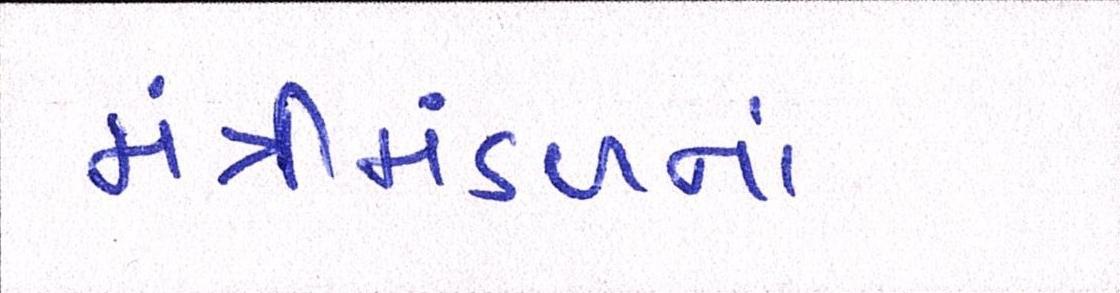 મંત્રીમંડળનાં